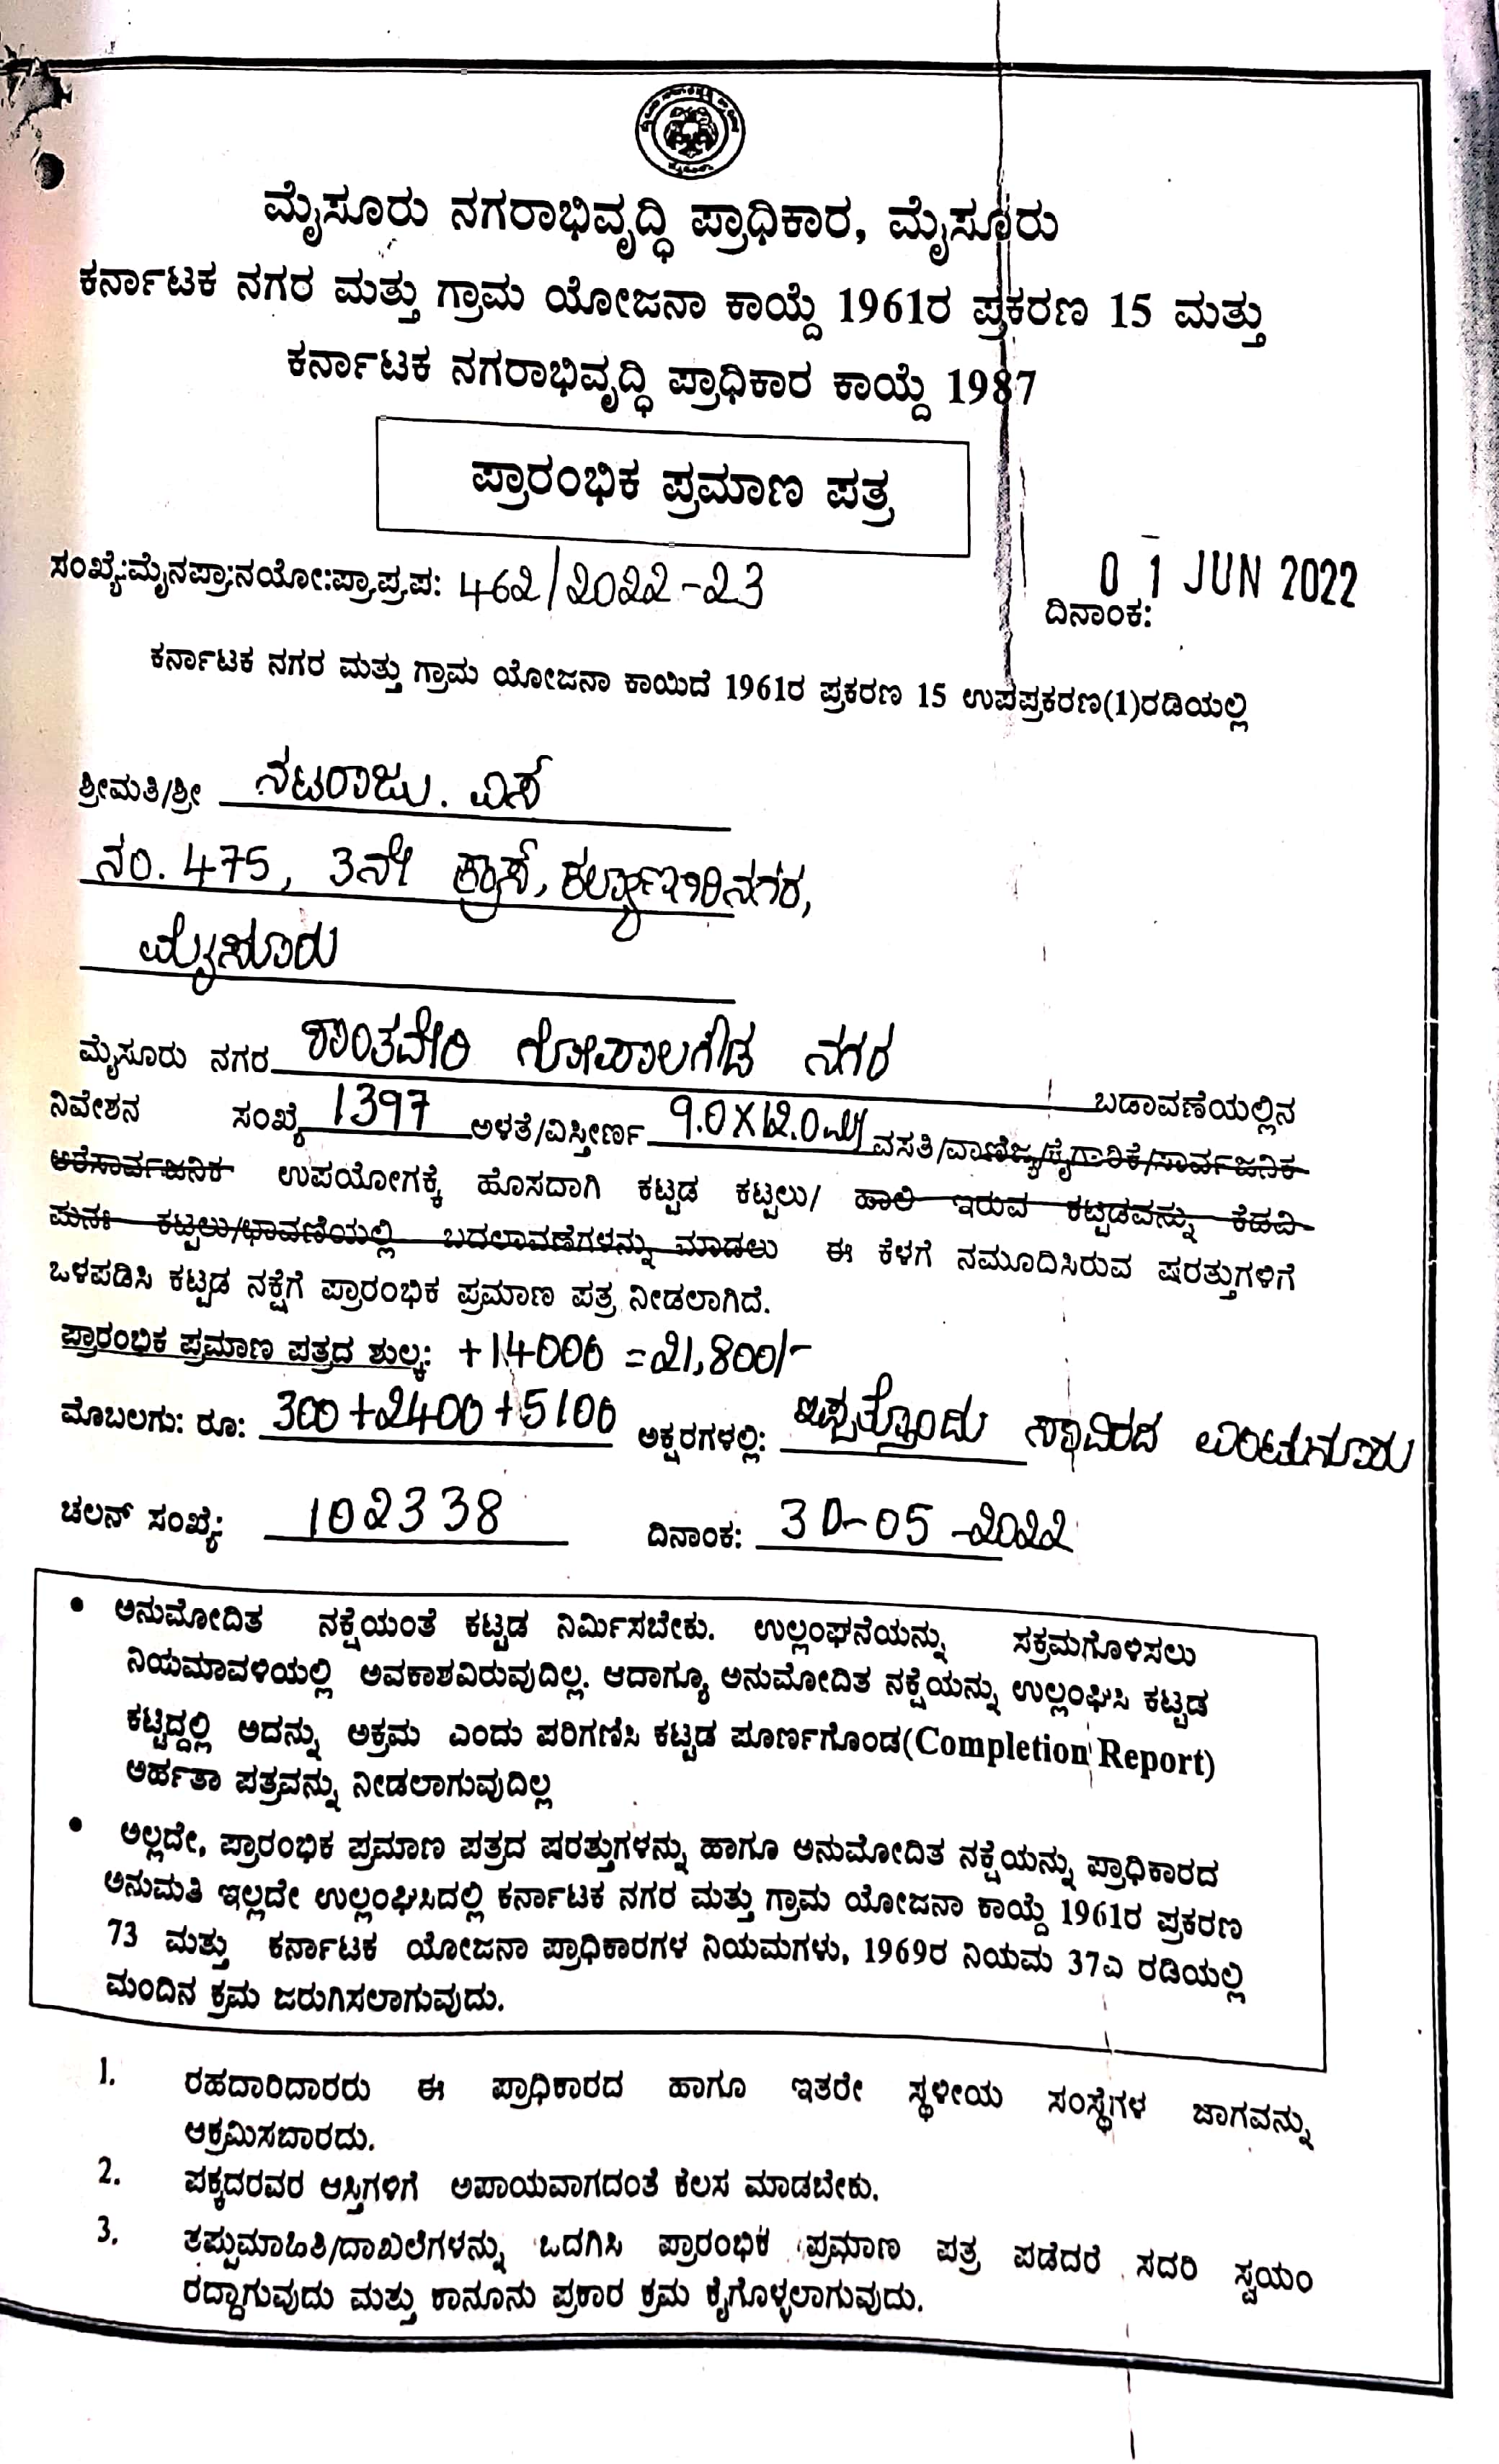 ಮೈಸೂರು ನಗರಾಭಿವೃದ್ಧಿ ಪ್ರಾಧಿಕಾರ, ಮೈಸೂರು
ಕರ್ನಾಟಕ ನಗರ ಮತ್ತು ಗ್ರಾಮ ಯೋಜನಾ ಕಾಯ್ದೆ 1961ರ ಪ್ರಕರಣ 15 ಮತ್ತು
ಕರ್ನಾಟಕ ನಗರಾಭಿವೃದ್ಧಿ ಪ್ರಾಧಿಕಾರ ಕಾಯ್ದೆ 1987
ಪ್ರಾರಂಭಿಕ ಪ್ರಮಾಣ ಪತ್ರ
ಸಂಖ್ಯೆ:ಮೈನಪ್ರಾ:ನಯೋ:ಪ್ರಾಪ್ರಪ: 462/2022-23
01 JUN 2022
ದಿನಾಂಕ:
ಕರ್ನಾಟಕ ನಗರ ಮತ್ತು ಗ್ರಾಮ ಯೋಜನಾ ಕಾಯಿದೆ 1961ರ ಪ್ರಕರಣ 15 ಉಪಪ್ರಕರಣ(1)ರಡಿಯಲ್ಲಿ
ಶ್ರೀಮತಿ/ಶ್ರೀ ನಟರಾಜು. ಎಸ್
ನಂ. 475, 3ನೇ ಕ್ರಾಸ್, ಕಲ್ಯಾಣಗಿರಿನಗರ,
ಮೈಸೂರು
ಮೈಸೂರು ನಗರ ಶಾಂತವೇರಿ ಗೋಪಾಲಗೌಡ ನಗರ ಬಡಾವಣೆಯಲ್ಲಿನ
ನಿವೇಶನ ಸಂಖ್ಯೆ 1397 ಅಳತೆ/ವಿಸ್ತೀರ್ಣ 9.0X12.0ಮೀ ವಸತಿ/ವಾಣಿಜ್ಯ/ಕೈಗಾರಿಕೆ/ಸಾರ್ವಜನಿಕ
ಅರೆಸಾರ್ವಜನಿಕ ಉಪಯೋಗಕ್ಕೆ ಹೊಸದಾಗಿ ಕಟ್ಟಡ ಕಟ್ಟಲು/ ಹಾಲಿ ಇರುವ ಕಟ್ಟಡವನ್ನು ಕೆಡವಿ
ಪುನಃ ಕಟ್ಟಲು/ಛಾವಣಿಯಲ್ಲಿ ಬದಲಾವಣೆಗಳನ್ನು ಮಾಡಲು ಈ ಕೆಳಗೆ ನಮೂದಿಸಿರುವ ಷರತ್ತುಗಳಿಗೆ
ಒಳಪಡಿಸಿ ಕಟ್ಟಡ ನಕ್ಷೆಗೆ ಪ್ರಾರಂಭಿಕ ಪ್ರಮಾಣ ಪತ್ರ ನೀಡಲಾಗಿದೆ.
ಪ್ರಾರಂಭಿಕ ಪ್ರಮಾಣ ಪತ್ರದ ಶುಲ್ಕ: +14000 =21,800/-
ಮೊಬಲಗು: ರೂ: 300+2400+5100 ಅಕ್ಷರಗಳಲ್ಲಿ: ಇಪ್ಪತ್ತೊಂದು ಸಾವಿರದ ಎಂಟುನೂರು
ಚಲನ್ ಸಂಖ್ಯೆ: 102338 ದಿನಾಂಕ: 30-05-2022
• ಅನುಮೋದಿತ ನಕ್ಷೆಯಂತೆ ಕಟ್ಟಡ ನಿರ್ಮಿಸಬೇಕು. ಉಲ್ಲಂಘನೆಯನ್ನು ಸಕ್ರಮಗೊಳಿಸಲು
ನಿಯಮಾವಳಿಯಲ್ಲಿ ಅವಕಾಶವಿರುವುದಿಲ್ಲ. ಆದಾಗ್ಯೂ ಅನುಮೋದಿತ ನಕ್ಷೆಯನ್ನು ಉಲ್ಲಂಘಿಸಿ ಕಟ್ಟಡ
ಕಟ್ಟಿದ್ದಲ್ಲಿ ಅದನ್ನು ಅಕ್ರಮ ಎಂದು ಪರಿಗಣಿಸಿ ಕಟ್ಟಡ ಪೂರ್ಣಗೊಂಡ(Completion Report)
ಅರ್ಹತಾ ಪತ್ರವನ್ನು ನೀಡಲಾಗುವುದಿಲ್ಲ
• ಅಲ್ಲದೇ, ಪ್ರಾರಂಭಿಕ ಪ್ರಮಾಣ ಪತ್ರದ ಷರತ್ತುಗಳನ್ನು ಹಾಗೂ ಅನುಮೋದಿತ ನಕ್ಷೆಯನ್ನು ಪ್ರಾಧಿಕಾರದ
ಅನುಮತಿ ಇಲ್ಲದೇ ಉಲ್ಲಂಘಿಸಿದಲ್ಲಿ ಕರ್ನಾಟಕ ನಗರ ಮತ್ತು ಗ್ರಾಮ ಯೋಜನಾ ಕಾಯ್ದೆ 1961ರ ಪ್ರಕರಣ
73 ಮತ್ತು ಕರ್ನಾಟಕ ಯೋಜನಾ ಪ್ರಾಧಿಕಾರಗಳ ನಿಯಮಗಳು, 1969ರ ನಿಯಮ 37ಎ ರಡಿಯಲ್ಲಿ
ಮಂದಿನ ಕ್ರಮ ಜರುಗಿಸಲಾಗುವುದು.
1. ರಹದಾರಿದಾರರು ಈ ಪ್ರಾಧಿಕಾರದ ಹಾಗೂ ಇತರೇ ಸ್ಥಳೀಯ ಸಂಸ್ಥೆಗಳ ಜಾಗವನ್ನು
ಆಕ್ರಮಿಸಬಾರದು.
2. ಪಕ್ಕದರವರ ಆಸ್ತಿಗಳಿಗೆ ಅಪಾಯವಾಗದಂತೆ ಕೆಲಸ ಮಾಡಬೇಕು.
3. ತಪ್ಪುಮಾಹಿತಿ/ದಾಖಲೆಗಳನ್ನು ಒದಗಿಸಿ ಪ್ರಾರಂಭಿಕ ಪ್ರಮಾಣ ಪತ್ರ ಪಡೆದರೆ ಸದರಿ ಸ್ವಯಂ
ರದ್ದಾಗುವುದು ಮತ್ತು ಕಾನೂನು ಪ್ರಕಾರ ಕ್ರಮ ಕೈಗೊಳ್ಳಲಾಗುವುದು.